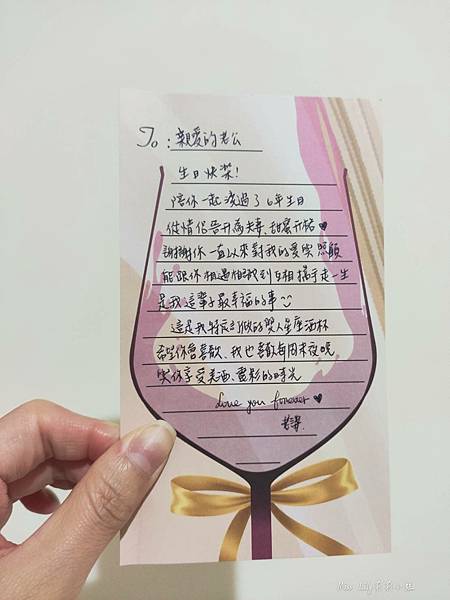 To:親愛的老公
生日快樂!
陪你一起渡過了6年生日
從情侶晉升為夫妻,甜蜜升格♥
謝謝你一直以來對我的愛與照顧
能跟你相遇 到互相攜手走一生
是我這輩子最幸福的事☺
這是我特 訂做的雙人星座酒杯
希望你會喜歡、我也喜歡每周末夜晚
與你享受美酒、電影的時光
Love you forever ♥
老婆.
Miss Lily